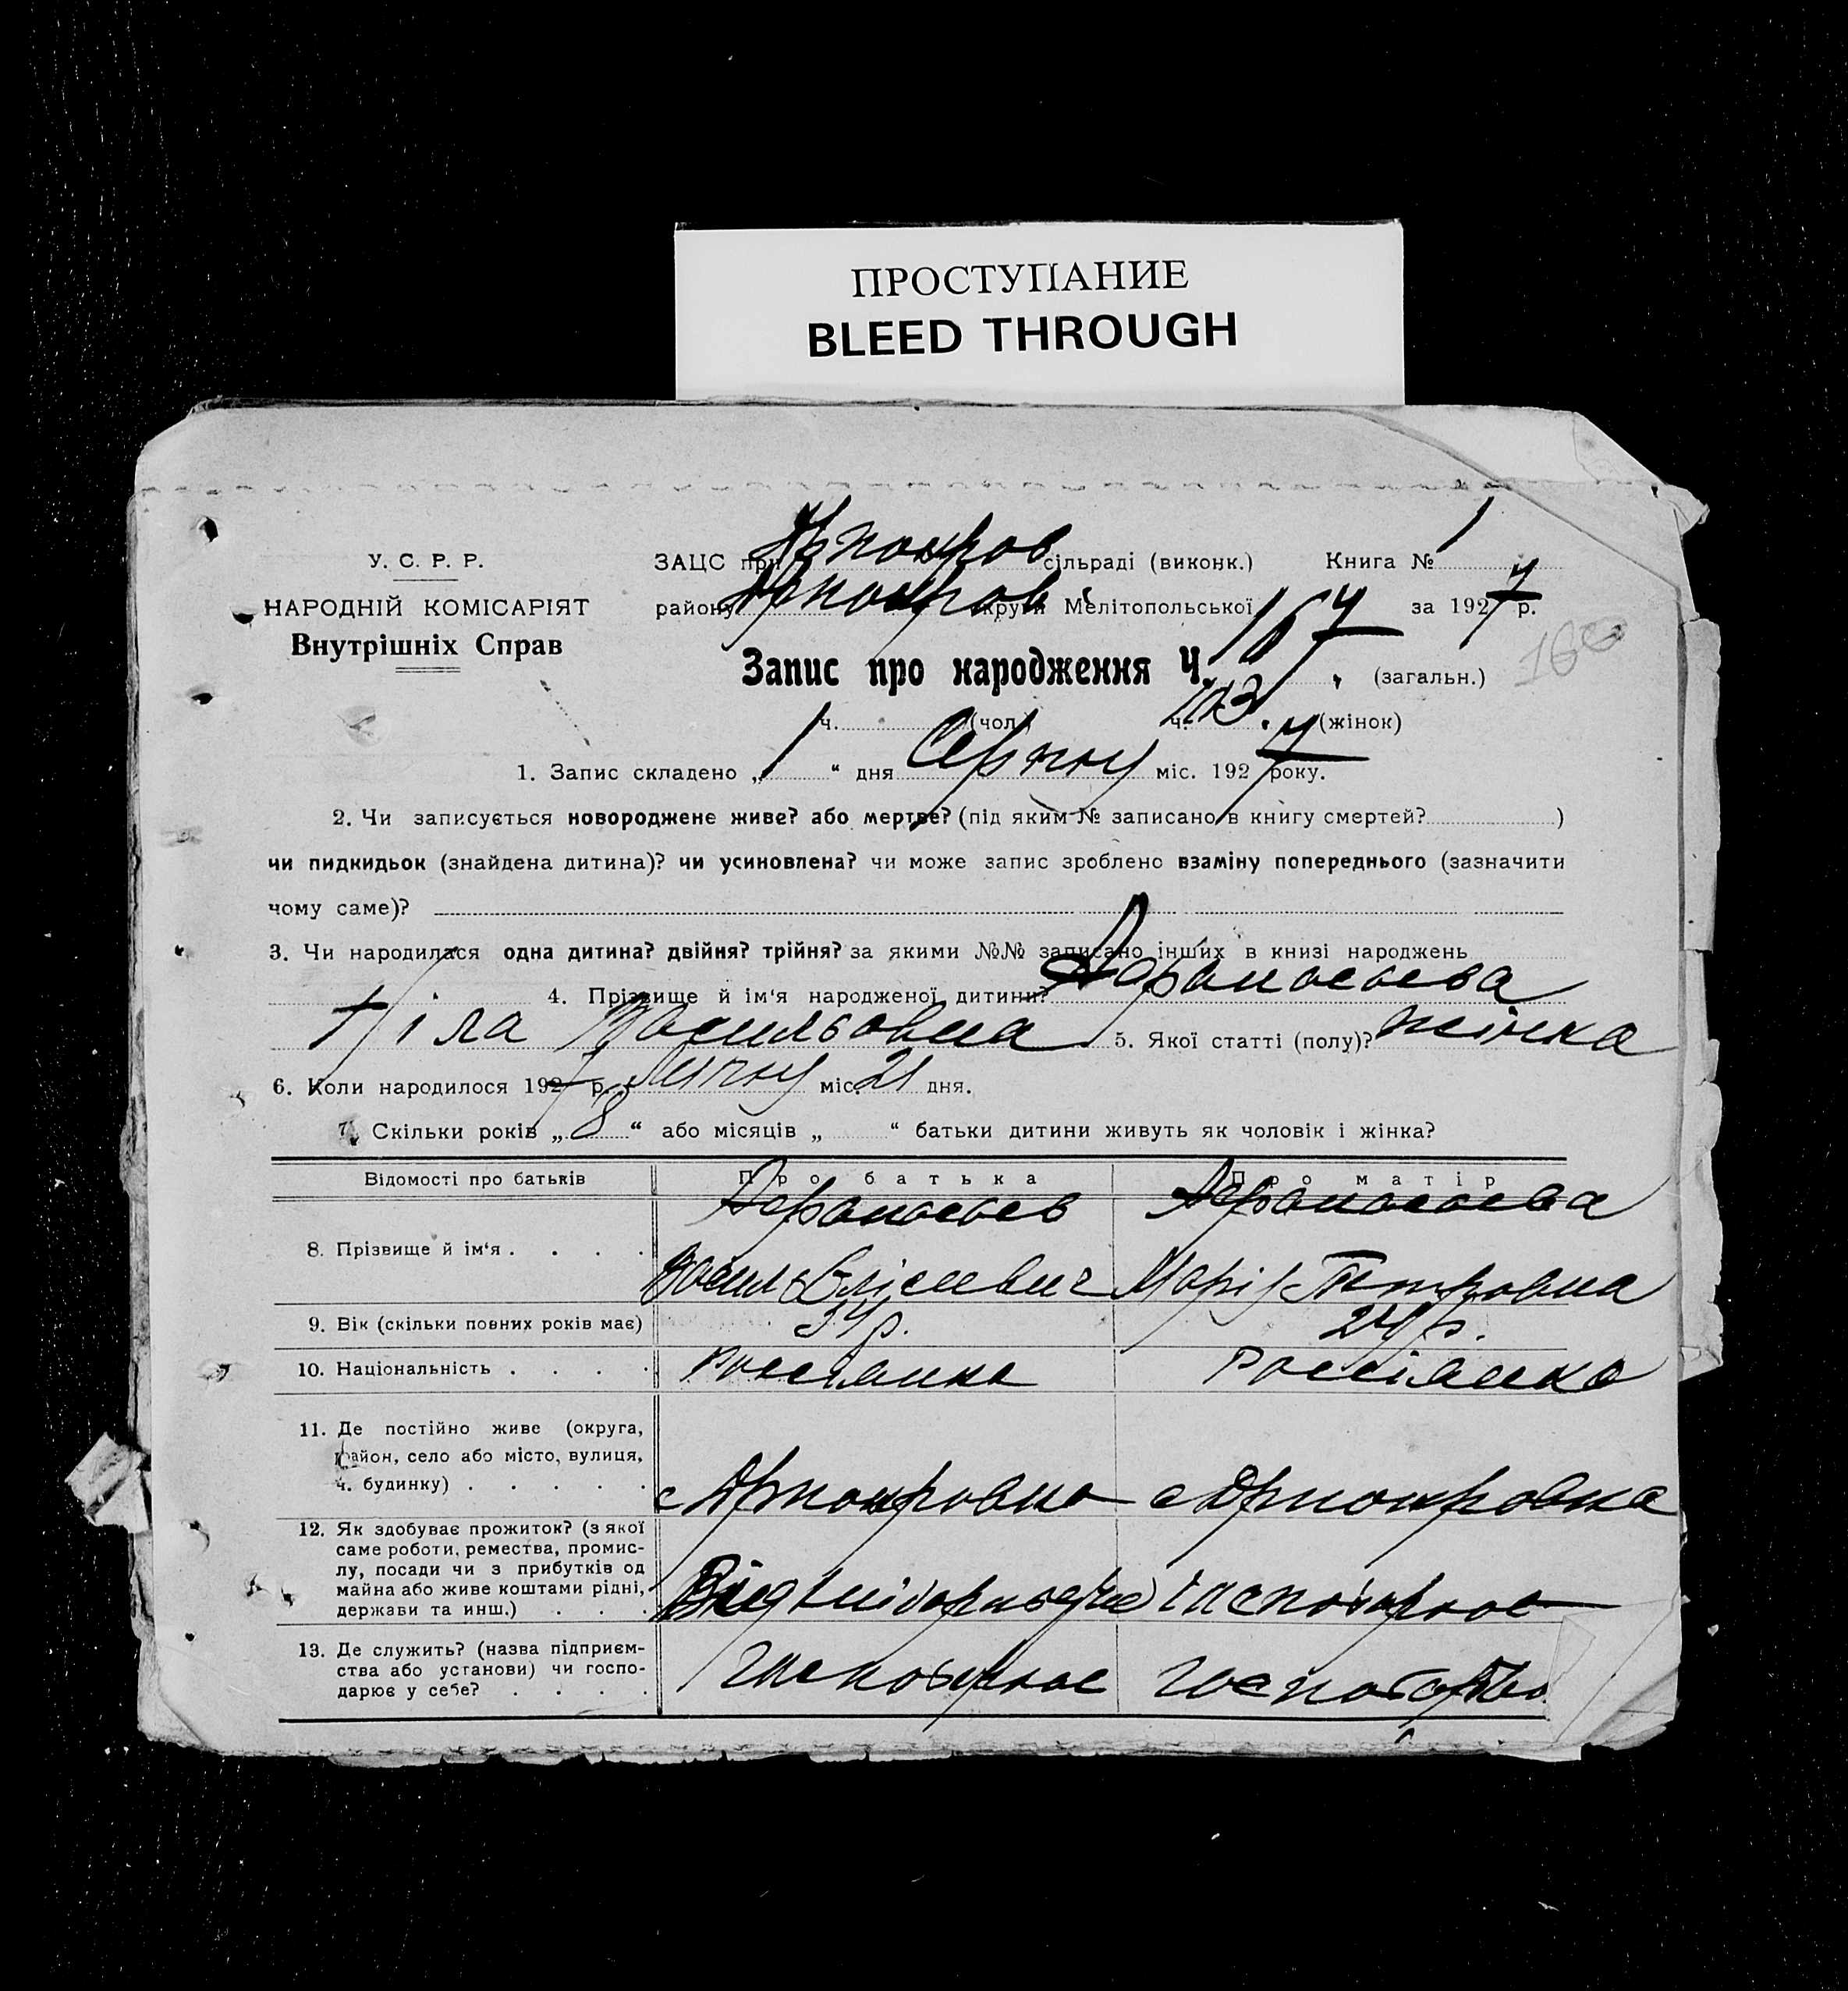 ПРОСТУПАНИЕ
BLEED THROUGH
У. С. Р. Р.
НАРОДНІЙ КОМІСАРІЯТ
Внутрішніх Справ
ЗАЦС при сільраді (виконк.) Книга № 1
району округи Мелітопольської за 1927 р.
Запис про народження Ч. 167 (загальн.)
ч. (чол.) ч. 103 (жінок)
1. Запис складено „1“ дня Серпню міс. 1927 року.
2. Чи записується новороджене живе? або мертве? (під яким № записано в книгу смертей? )
чи пидкидьок (знайдена дитина)? чи усиновлена? чи може запис зроблено взаміну попереднього (зазначити
чому саме)?
3. Чи народилася одна дитина? двійня? трійня? за якими №№ записано інших в книзі народжень
4. Прізвище й ім'я народженої дитини? Афанасьева
Васильовна 5. Якої статті (полу)? жінка
6. Коли народилося 1927 р. Липню міс. 21 дня.
7. Скільки років „8“ або місяців „ “ батьки дитини живуть як чоловік і жінка?
Відомості про батьків Про батька Про матір
8. Прізвище й ім'я . . . . Афанасьев Афанасьева
Василь Елісеевич Марія Петровна
9. Вік (скільки повних років має) 34 р. 24 р.
10. Національність . . . . Россіянка Россіянка
11. Де постійно живе (округа,
район, село або місто, вулиця,
ч. будинку) . . . . .
12. Як здобуває прожиток? (з якої
саме роботи, ремества, промис-
лу, посади чи з прибутків од
майна або живе коштами рідні,
держави та инш.) . . .
13. Де служить? (назва підприєм-
ства або установи) чи госпо-
дарює у себе? . . . .